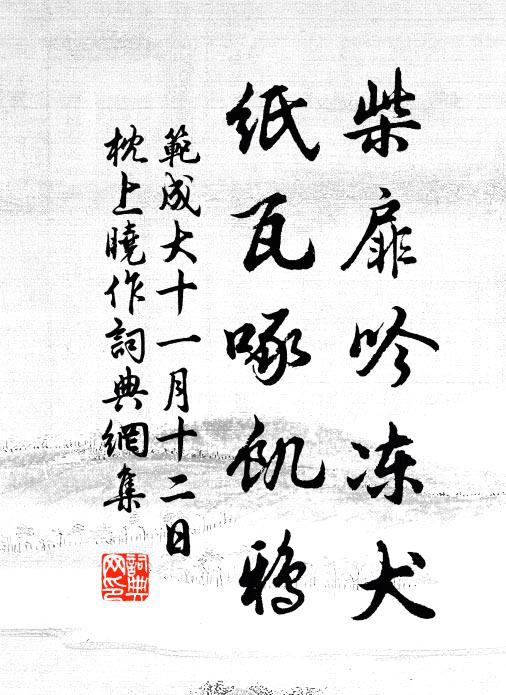 柴扉吟冻犬
纸瓦啄飢鸦
範成大十一月十二日
枕上曉作詞典網集
詞典网印